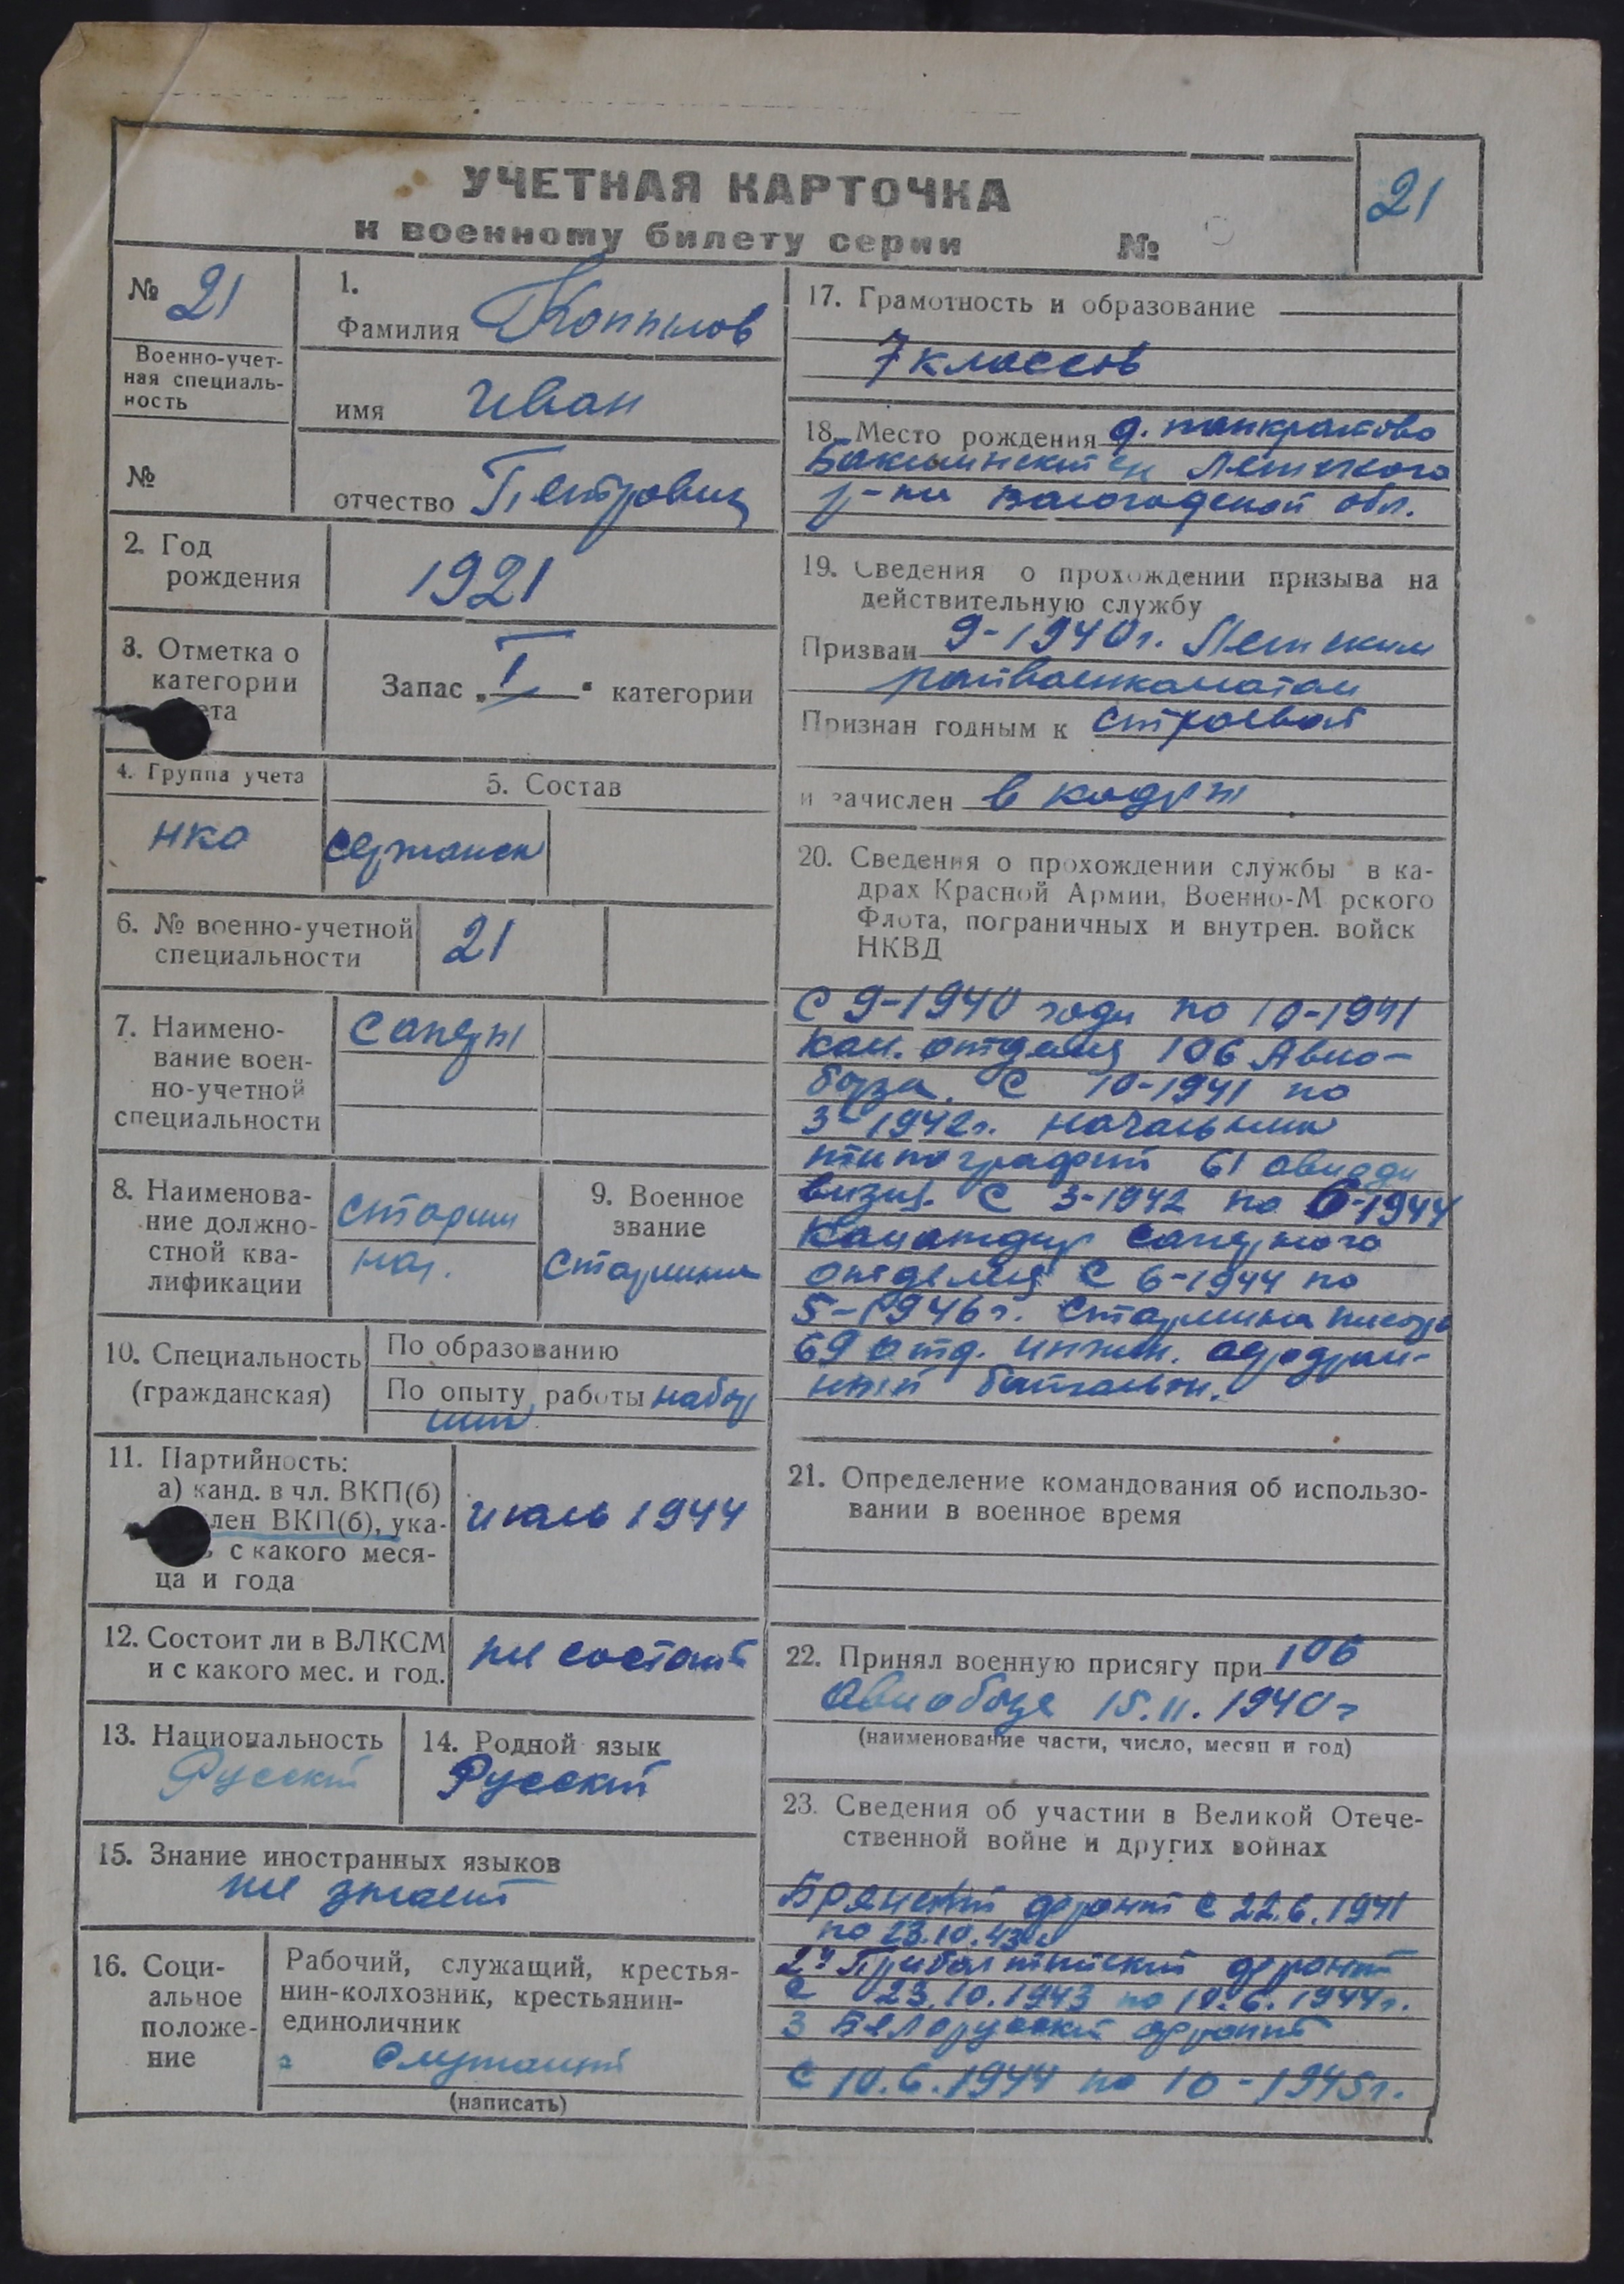 УЧЕТНАЯ КАРТОЧКА
к военному билету серии №
21
№ 21
Военно-учет-
ная специаль-
ность
№
1.
Фамилия Копылов
имя Иван
отчество Петрович
2. Год
рождения
1921
3. Отметка о
категории
ета
Запас „I“ категории
4. Группа учета
НКО
5. Состав
сержанск
6. № военно-учетной
специальности
21
7. Наимено-
вание воен-
но-учетной
специальности
Саперы
8. Наименова-
ние должно-
стной ква-
лификации
9. Военное
звание
Старшина
10. Специальность
(гражданская)
По образованию
По опыту работы набор
щик
11. Партийность:
а) канд. в чл. ВКП(б)
лен ВКП(б), ука-
ь с какого меся-
ца и года
Июль 1944
12. Состоит ли в ВЛКСМ
и с какого мес. и год.
не состоит
13. Национальность
Русский
14. Родной язык
Русский
15. Знание иностранных языков
не знает
16. Соци-
альное
положе-
ние
Рабочий, служащий, крестья-
нин-колхозник, крестьянин-
единоличник
Служащий
(написать)
17. Грамотность и образование
7 классов
18. Место рождения д. панкратово
р-на Вологодской обл.
19. Сведения о прохождении призыва на
действительную службу
Призван 9-1940г.
райвоенкоматом
Признан годным к строевой
и зачислен в кадры
20. Сведения о прохождении службы в ка-
драх Красной Армии, Военно-М рского
Флота, пограничных и внутрен. войск
НКВД
С 9-1940 года по 10-1941
Ком. отделен 106 Авиа-
базы. С 10-1941 по
3-1942г. начальник
типографии 61 авиади
визии. С 3-1942 по 6-1944
Командир саперного
отделен С 6-1944 по
5-1946г. Старшина
69 отд. инжен. аэродром-
ный батальон.
21. Определение командования об использо-
вании в военное время
22. Принял военную присягу при 106
Авиабазе 15.11.1940г
(наименование части, число, месяц и год)
23. Сведения об участии в Великой Отече-
ственной войне и других войнах
Брянский фронт с 22.6.1941
по 23.10.43г
2й Прибалтийский фронт
с 23.10.1943 по 10.6.1944г.
3 Белорусский фронт
С 10.6.1944 по 10-1945г.